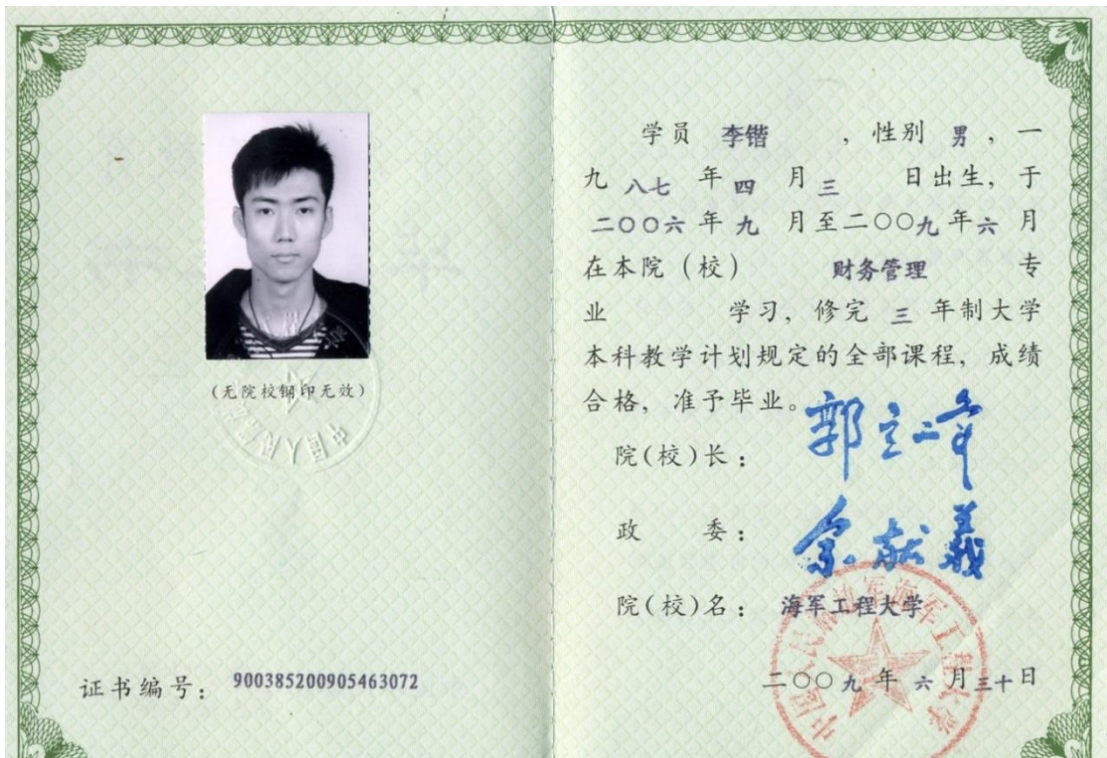 (无院校钢印无效)
证书编号: 900385200905463072
学员 李锴 ,性别 男,一
九八七年四月三日出生,于
二〇〇六年九月至二〇〇九年六月
在本院(校) 财务管理 专
业 学习,修完 三 年制大学
本科教学计划规定的全部课程,成绩
合格,准予毕业。
院(校)长: 郭立峰
政 委: 余献义
院(校)名: 海军工程大学
中国人民解放军海军工程大学
二〇〇九年六月三十日